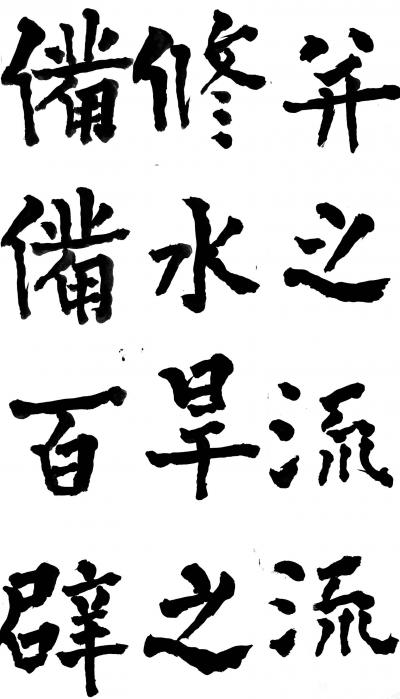 并之流流
修水旱之
備備百辟